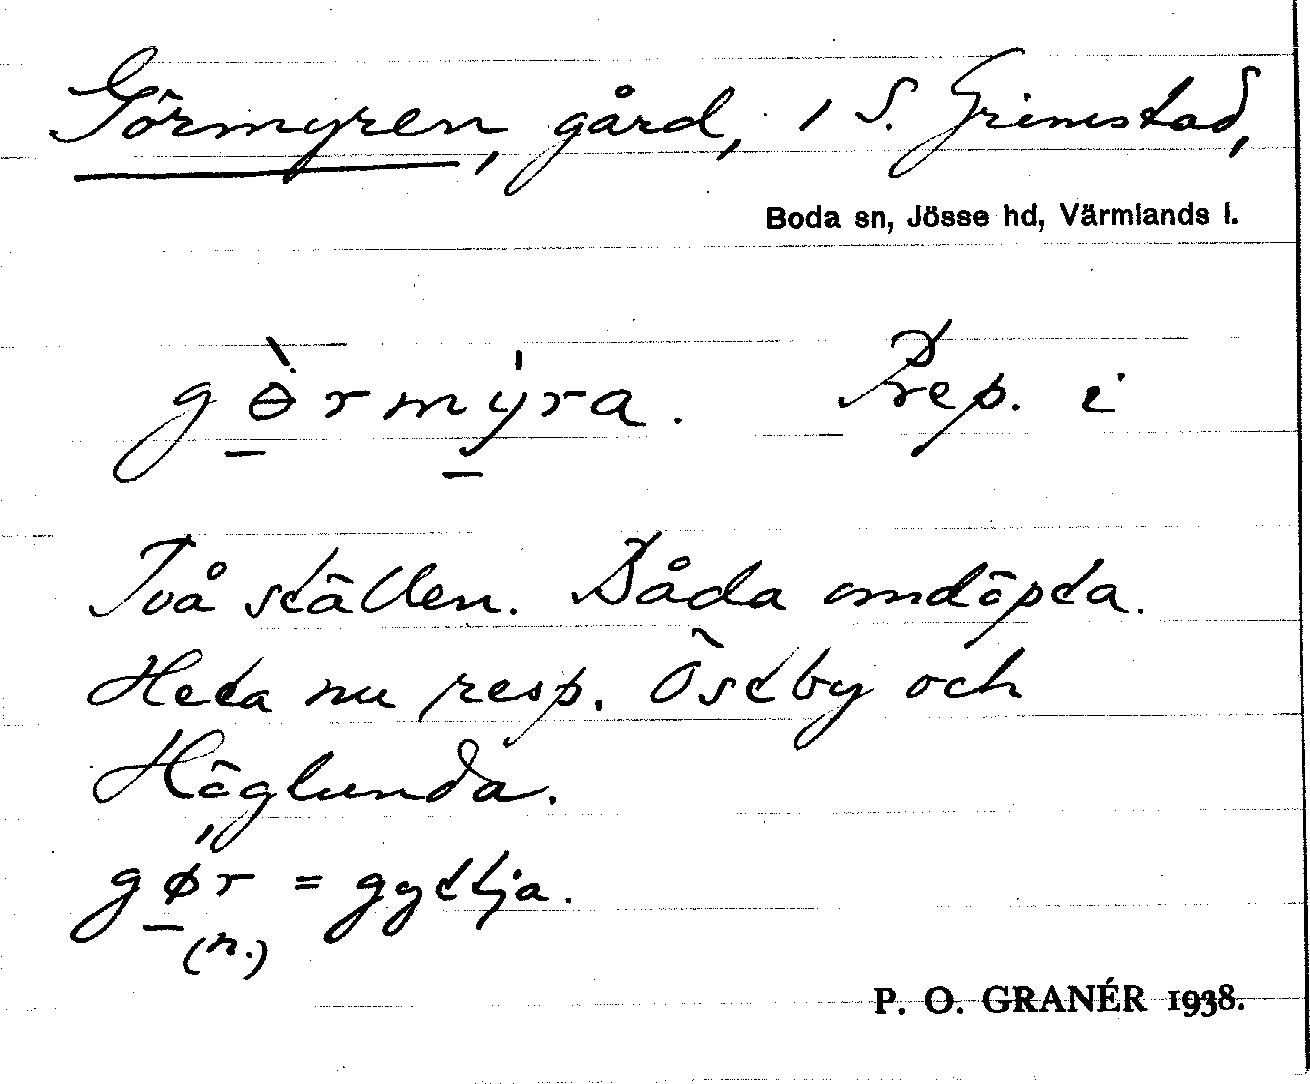 Görmyren, gård, i S. Grimstad,
Boda sn, Jösse hd, Värmlands l.
gɵ̀rmýra. Prep. i
Två ställen. Båda omdöpta.
Heta nu resp. Östby och
Höglunda.
gør = gyttja.
(n.)
P. O. GRANÉR 1938.